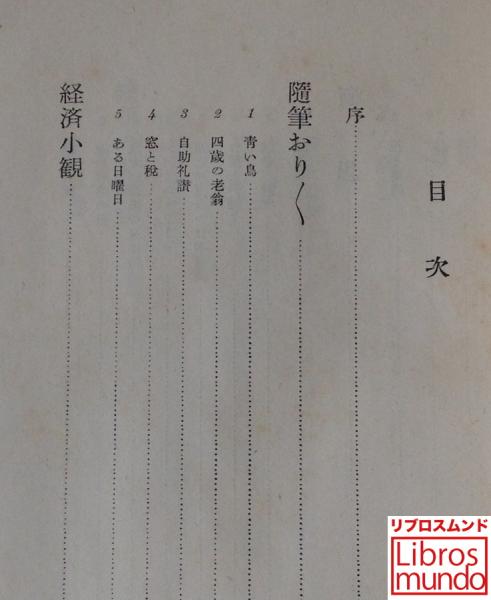 目次
序
隨筆おり〱
1 青い鳥
2 四歳の老翁
3 自助礼讃
4 窓と税
5 ある日曜日
経済小観
リブロスムンド
Libros
mundo